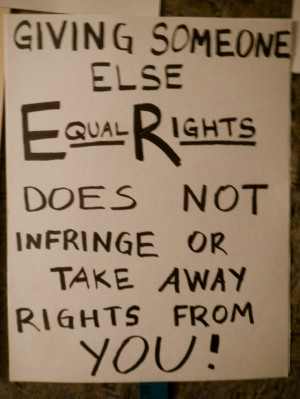 GIVING SOMEONE
ELSE
EQUAL RIGHTS
DOES NOT
INFRINGE OR
TAKE AWAY
RIGHTS FROM
YOU!